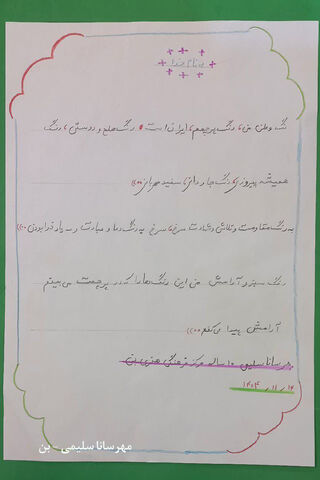 به نام خدا
رنگ وطن من، رنگ پرچمم، ایران است. رنگ صلح و دوستی، رنگ
همیشه پیروزی، رنگ جاودانی، سفید مهربانی
به رنگ مقاومت و تلاش و شهادت سرخ، سرخ به رنگ دعا و عبادت و به یاد خدا بودن
رنگ سبز و آرامش من این رنگ‌ها را که در پرچمت می‌بینم
آرامش پیدا می‌کنم
مهرسانا سلیمی ۱۰ ساله مرکز فرهنگی هنری بن
۱۴۰۴/۱۱/۱۲
مهرسانا سلیمی - بن